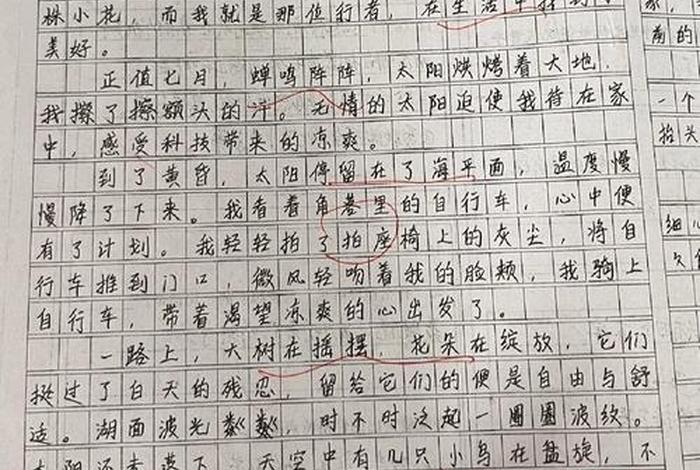 株小花，而我就是那位行者，在生活中找到了
美好。
正值七月，蝉鸣阵阵，太阳烘烤着大地。
我擦了擦额头的汗。无情的太阳迫使我待在家
中，感受科技带来的冻爽。
到了黄昏，太阳停留在了海平面，温度慢
慢降了下来。我看着角巷里的自行车，心中便
有了计划。我轻轻拍了拍座椅上的灰尘，将自
行车推到门口，微风轻吻着我的脸颊，我骑上
自行车，带着渴望冻爽的心出发了。
一路上，大树在摇摆，花朵在绽放，它们
挺过了白天的残忍，留给它们的便是自由与舒
适。湖面波光粼粼，时不时泛起一圈圈波纹。
太阳还未落下，天空中有几只小鸟在盘旋，不
家，
前的
一个
抬头
细心